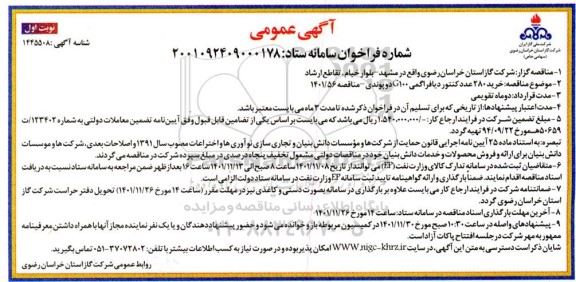 آگهی عمومی
نوبت اول
شناسه آگهی: ۱۴۴۵۵۰۸
شرکت ملی گاز ایران
شرکت گاز استان خراسان رضوی
(سهامی خاص)
شماره فراخوان سامانه ستاد: ۲۰۰۱۰۹۲۴۰۹۰۰۰۱۷۸
۱-مناقصه گزار: شرکت گاز استان خراسان رضوی واقع در مشهد- بلوار خیام، تقاطع ارشاد
۲-موضوع مناقصه: خرید ۲۸۰ عدد کنتور دیافراگمی G۱۰۰ دوپوندی - مناقصه ۱۴۰۱/۵۶
۳-مدت قرارداد: دو ماه تقویمی
۴-مدت اعتبار پیشنهادها: از تاریخی که برای تسلیم آن در فراخوان ذکر شده تا مدت ۳ ماه می بایست معتبر باشد.
۵-مبلغ تضمین شرکت در فرایند ارجاع کار: ۱,۵۴۰,۰۰۰,۰۰۰/- ریال می باشد که می بایست بر اساس یکی از تضامین قابل قبول وفق آیین نامه تضمین معاملات دولتی به شماره ۱۲۳۴۰۲/ت
۵۰۶۵۹ه مورخ ۹۴/۰۹/۲۲ تهیه گردد.
تبصره: به استناد ماده ۲۵ آئین نامه اجرایی قانون حمایت از شرکت ها و مؤسسات دانش بنیان و تجاری سازی نوآوری ها و اختراعات مصوب سال ۱۳۹۱ و اصلاحات بعدی، شرکت ها و موسسات
دانش بنیان برای ارائه و فروش محصولات و خدمات دانش بنیان خود در مناقصات دولتی مشمول تخفیف پنجاه درصدی در مبلغ سپرده شرکت در مناقصه می گردند.
۶-متقاضیان ثبت شده در سامانه تدارک کالای وزارت نفت (EP) می توانند از تاریخ ۱۴۰۱/۱۱/۰۸ ساعت ۸ صبح الی ۱۴۰۱/۱۱/۱۳ ساعت ۱۶ بعدازظهر ضمن مراجعه به سامانه ستاد نسبت به دریافت
اسناد مناقصه اقدام نمایند. ضمناً بارگذاری و ارائه گواهینامه تایید ثبت سامانه EP وزارت نفت در سامانه ستاد دولت الزامی است.
۷-ضمانتنامه شرکت در فرایند ارجاع کار می بایست علاوه بر بارگذاری در سامانه بصورت دستی و کاغذی نیز در مهلت مقرر (ساعت ۱۴ مورخ ۱۴۰۱/۱۱/۲۶) تحویل دفتر حراست شرکت گاز
استان خراسان رضوی گردد.
۸-آخرین مهلت بارگذاری اسناد مناقصه در سامانه ستاد: ساعت ۱۴ مورخ ۱۴۰۱/۱۱/۲۶
۹-پیشنهادهای واصله در ساعت ۱۰:۳۰ صبح مورخ ۱۴۰۱/۱۱/۳۰ در کمیسیون مربوطه باز و خوانده می شود و حضور پیشنهاددهندگان و یا یک نفر نماینده مجاز آنها با همراه داشتن معرفینامه
ممهور به مهر شرکت در جلسه افتتاح پاکات آزاد است.
شایان ذکر است دسترسی به متن این آگهی، در سایت WWW.nigc-khrz.ir امکان پذیر بوده و در صورت نیاز به کسب اطلاعات بیشتر با تلفن: ۳۷۰۷۲۸۰۲-۰۵۱ تماس بگیرید.
روابط عمومی شرکت گاز استان خراسان رضوی